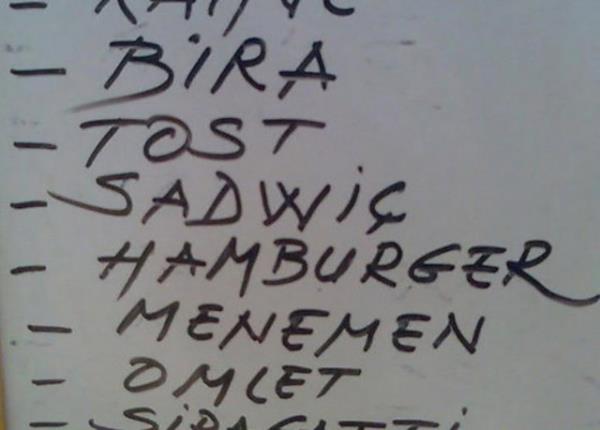 - BiRA
- TOST
- SADWiÇ
- HAMBURGER
- MENEMEN
- OMLET